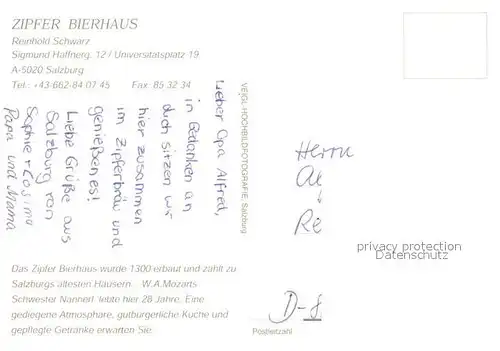 ZIPFER BIERHAUS
Reinhold Schwarz
Sigmund Haffnerg. 12 / Universitätsplatz 19
A-5020 Salzburg
Tel.: +43-662-84 07 45 Fax: 85 32 34
Lieber Opa Alfred,
in Gedanken an
dich sitzen wir
hier zusammen
im Zipferbräu und
genießen es!
Liebe Grüße aus
Salzburg von
Sophie + Cosima
Papa und Mama
VEIGL-HOCHBILDFOTOGRAFIE, Salzburg
Herrn
Re
privacy protection
Datenschutz
Das Zipfer Bierhaus wurde 1300 erbaut und zählt zu
Salzburgs ältesten Häusern. W.A.Mozarts
Schwester Nannerl lebte hier 28 Jahre. Eine
gediegene Atmosphäre, gutbürgerliche Küche und
gepflegte Getränke erwarten Sie.
D-8
Postleitzahl